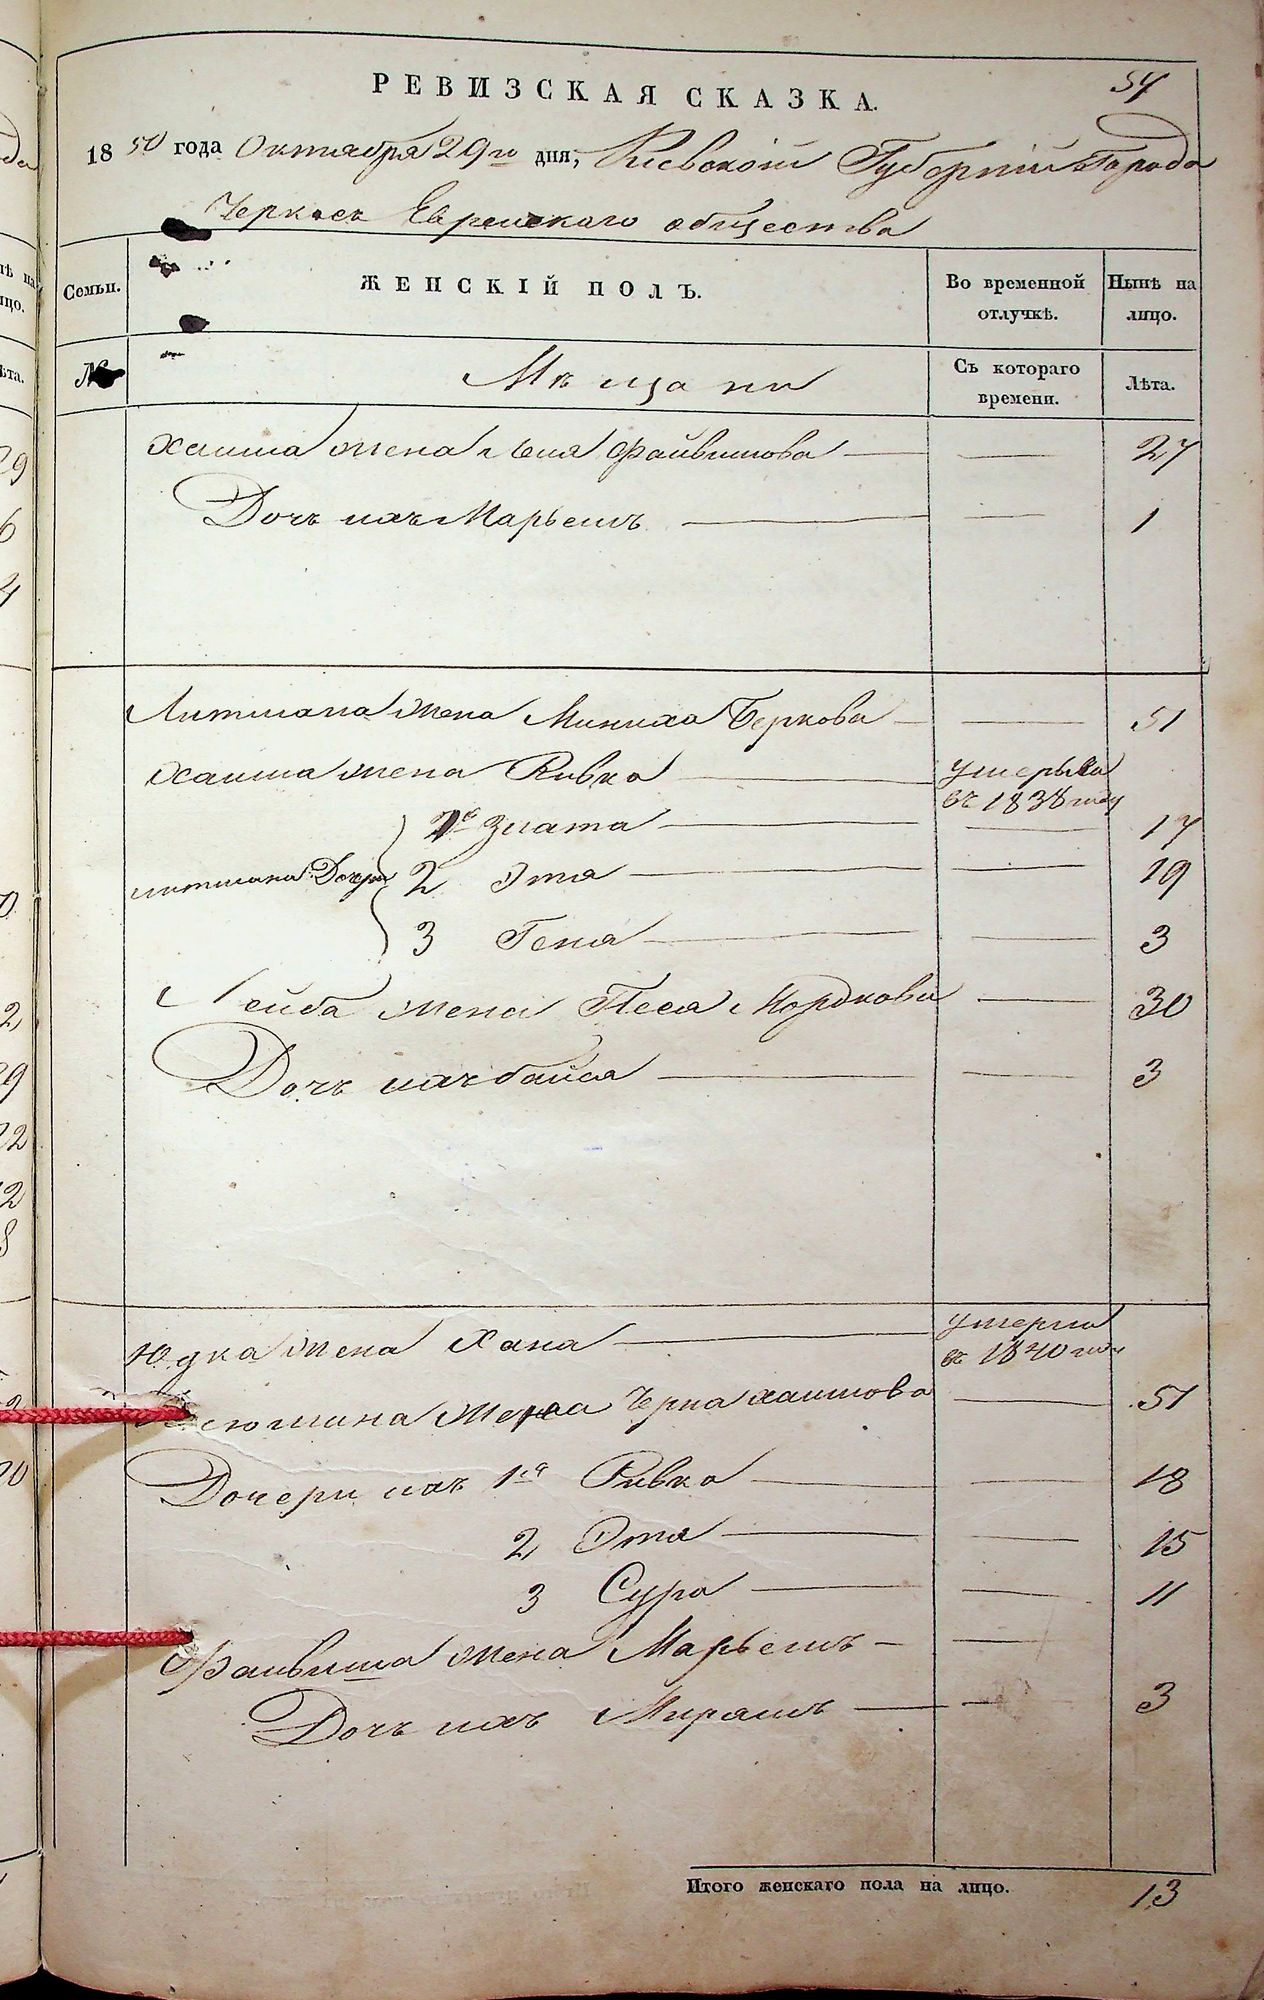 54
РЕВИЗСКАЯ СКАЗКА.
1850 года Октября 29го дня, Киевской Губерніи Города
Черкас Еврейскаго общества
Семьи. ЖЕНСКІЙ ПОЛЪ. Во временной отлучкѣ. Нынѣ на лицо.
№ Мѣщани Съ котораго времени. Лѣта.
Хаима жена Лея Файвишова 27
Дочь ихъ Марьемъ 1
Литмана жена Миниха Беркова 51
Хаима жена Ривка умерыла въ 1838 году
1я Злата 17
Литмана Дочери 2 Эта 19
3 Геня 3
Лейба жена Песя Мордкова 30
Дочь ихъ Байся 3
Юдка жена Хана умерла въ 1840 году
жена Черна Хаимова 51
Дочери ихъ 1я Ривка 18
2 Этя 15
3 Сура 11
Файвиша жена Марьемъ
Дочь ихъ Мирямъ 3
Итого женскаго пола на лицо. 13